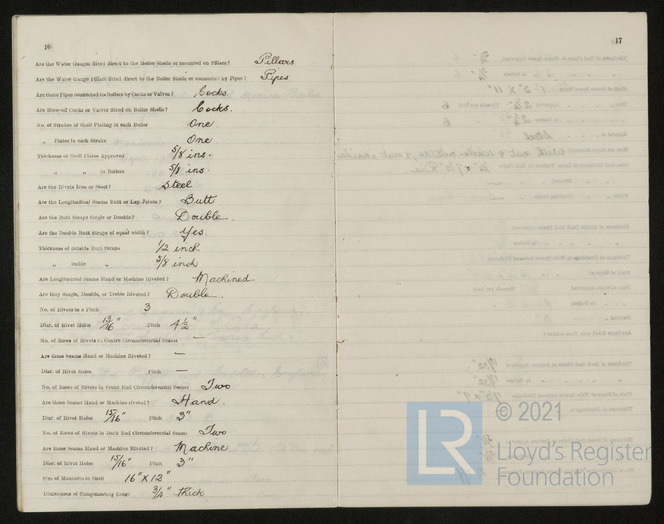 16
Are the Water Gauges fitted direct to the Boiler Shells or mounted on Pillars? Pillars
Are the Water Gauge Pillars fitted direct to the Boiler Shells or connected by Pipes? Pipes
Are these Pipes connected to Boilers by Cocks or Valves? Cocks.
Are Blow-off Cocks or Valves fitted on Boiler Shells? Cocks.
No. of Strakes of Shell Plating in each Boiler One
„ Plates in each Strake One
Thickness of Shell Plates Approved 5/8 ins.
„ „ in Boilers 5/8 ins.
Are the Rivets Iron or Steel? Steel
Are the Longitudinal Seams Butt or Lap Joints? Butt
Are the Butt Straps Single or Double? Double.
Are the Double Butt Straps of equal width? Yes.
Thickness of outside Butt Straps 1/2 inch
„ inside „ 3/8 inch
Are Longitudinal Seams Hand or Machine Riveted? Machined
Are they Single, Double, or Treble Riveted? Double.
No. of Rivets in a Pitch 3
Diar. of Rivet Holes 13/16" Pitch 4 1/2"
No. of Rows of Rivets in Centre Circumferential Seams —
Are these Seams Hand or Machine Riveted? —
Diar. of Rivet Holes Pitch —
No. of Rows of Rivets in Front End Circumferential Seams Two
Are these Seams Hand or Machine riveted? Hand.
Diar. of Rivet Holes 15/16" Pitch 3"
No. of Rows of Rivets in Back End Circumferential Seams Two
Are these Seams Hand or Machine Riveted? Machine
Diar. of Rivet Holes 15/16" Pitch 3"
Size of Manholes in Shell 16" X 12"
Dimensions of Compensating Rings 3/4" thick
17
LR © 2021
Lloyd's Register
Foundation